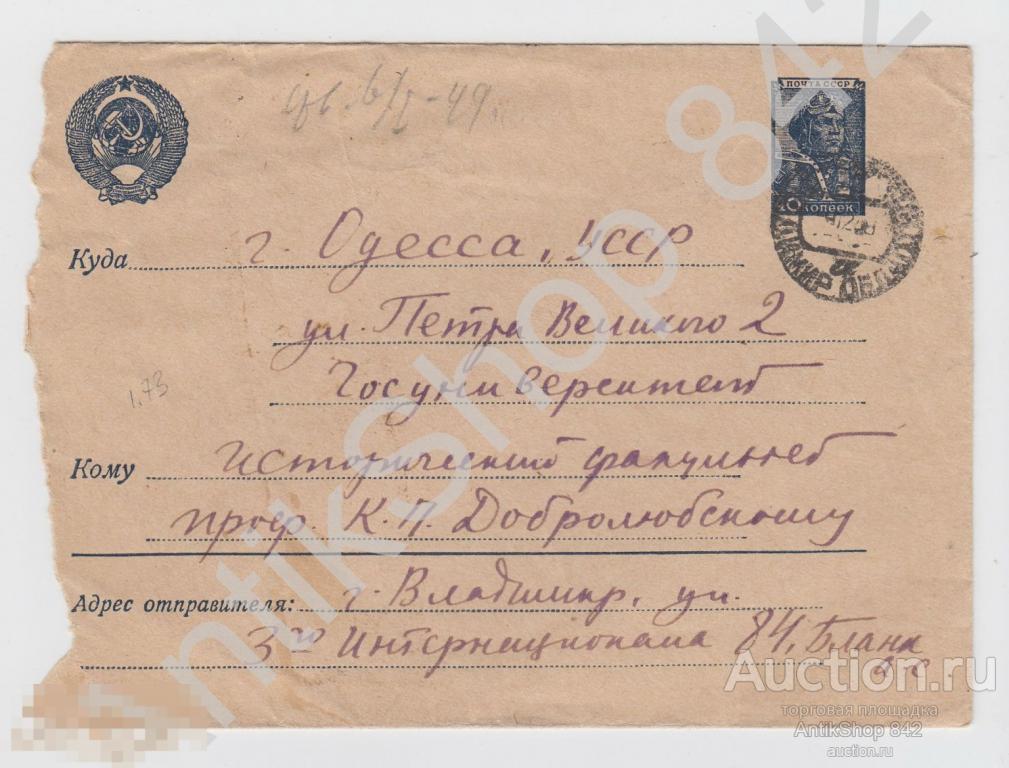 ПОЧТА СССР
КОПЕЕК
Куда г. Одесса, УССР
ул. Петра Великого 2
Госуниверситет
1,73
Кому исторический факультет
проф. К.П. Добролюбскому
Адрес отправителя: г. Владимир, ул.
3го Интернационала 84, Бланк
AntikShop 842
Auction.ru
торговая площадка
AntikShop 842
auction.ru